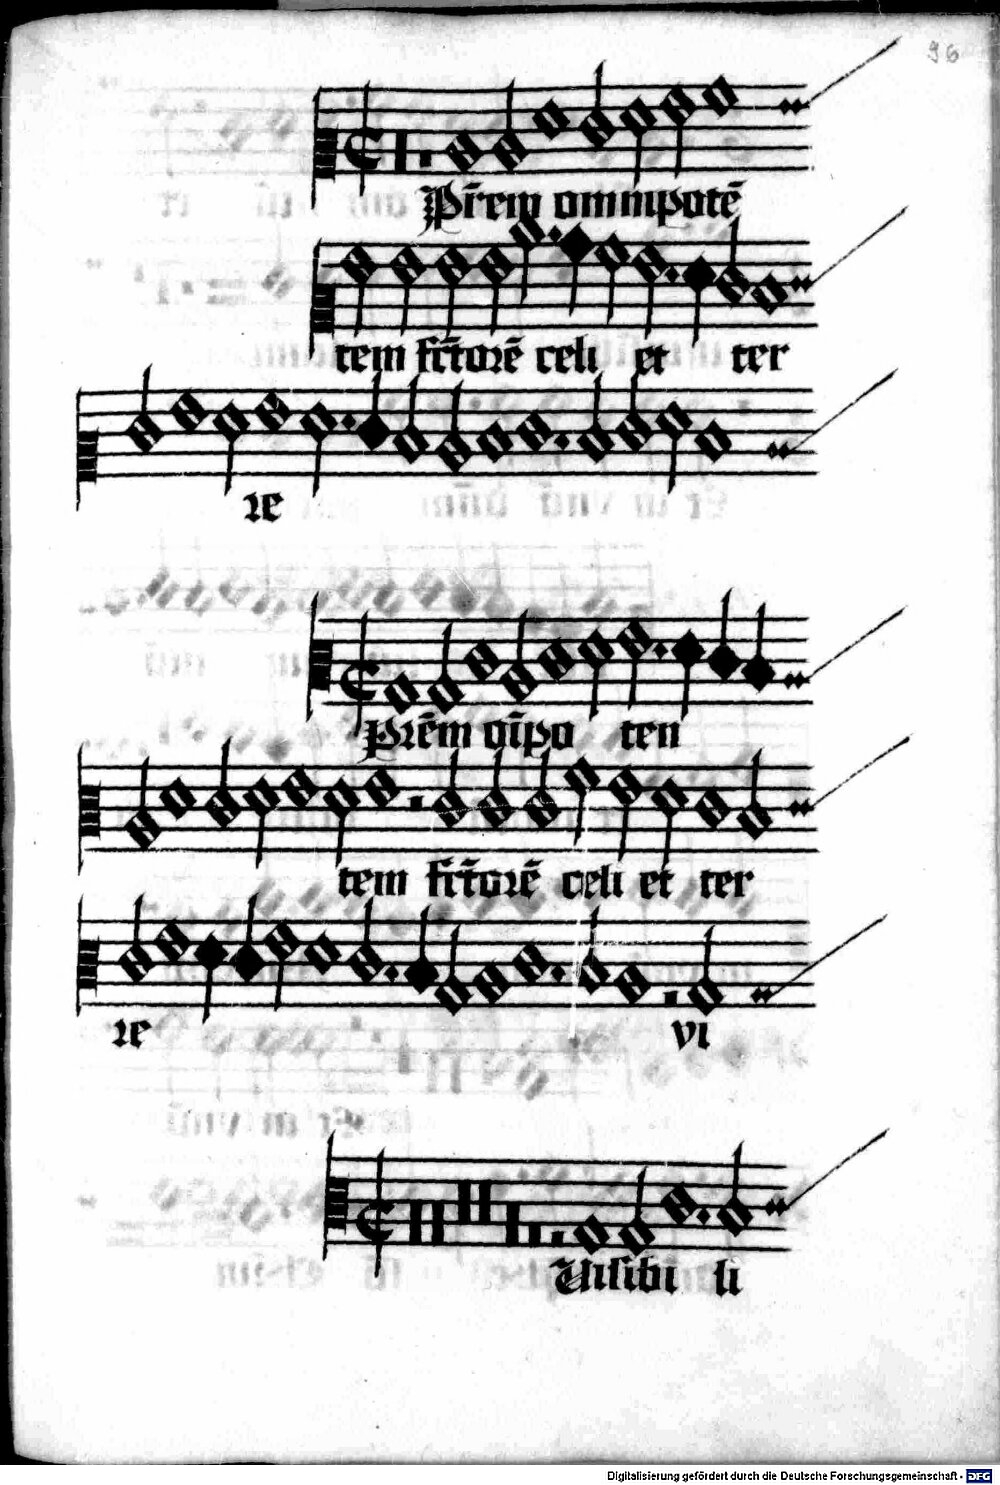 96
Pr̄em omnipotē
tem fc̄torē celi et ter
re
Prēm oīpo ten
tem fc̄torē celi et ter
re vi
Uisibi li
Digitalisierung gefördert durch die Deutsche Forschungsgemeinschaft - DFG